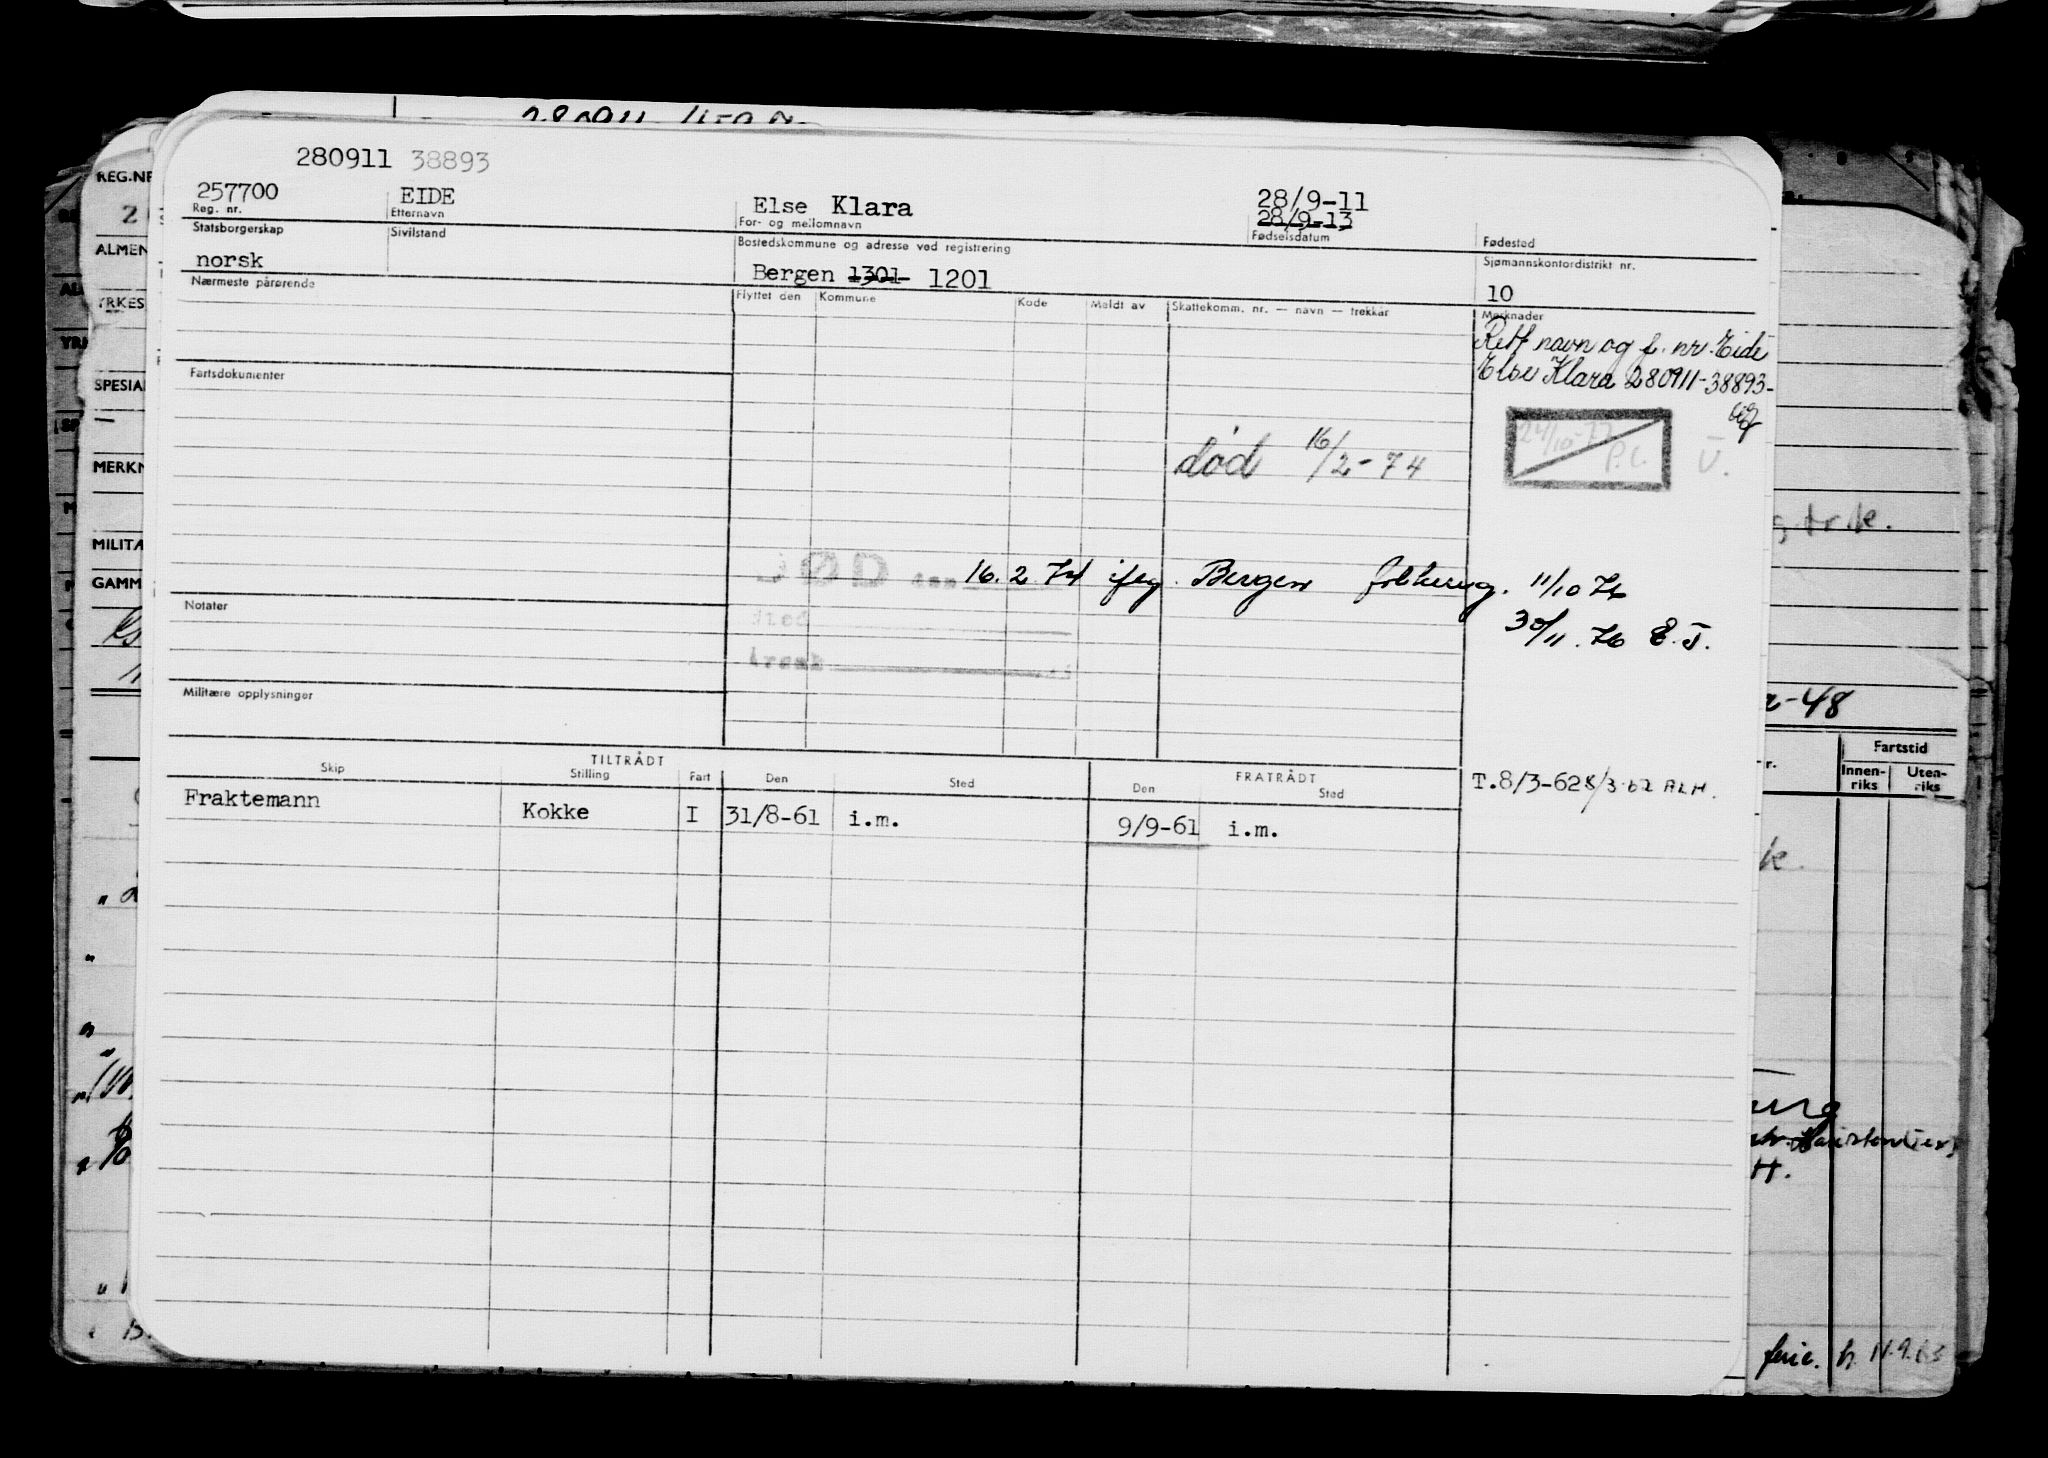 280911 38893
257700 EIDE Else Klara 28/9-11
28/9-13
Reg. nr. Etternavn For- og mellomnavn Fødselsdatum Fødested
Statsborgerskap Sivilstand Bostedskommune og adresse ved registrering Sjømannskontordistrikt nr.
norsk Bergen 1301 1201 10
Nærmeste pårørende Flyttet den Kommune Kode Meldt av Skattekomm. nr. — navn — trekkår Merknader
Rett navn og f. nr. Eide
Else Klara 280911-38893-
Fartsdokumenter
24/10-77
P.L. U.
død 16/2-74
DØD den 16.2.74 iflg. Bergen folkereg. 11/10 76
sted
30/11.76 E.J.
Notater
Militære opplysninger
TILTRÅDT FRATRÅDT
Skip Stilling Fart Den Sted Den Sted
T.8/3-62 8/3-62 ALH.
Fraktemann Kokke I 31/8-61 i.m. 9/9-61 i.m.
REG.NR
ALMEN
YRKES
SPESIAL
MERKN
MILITÆ
GAMM
-48
Fartstid
Innen-riks Uten-riks
ferie. h 11.9.63